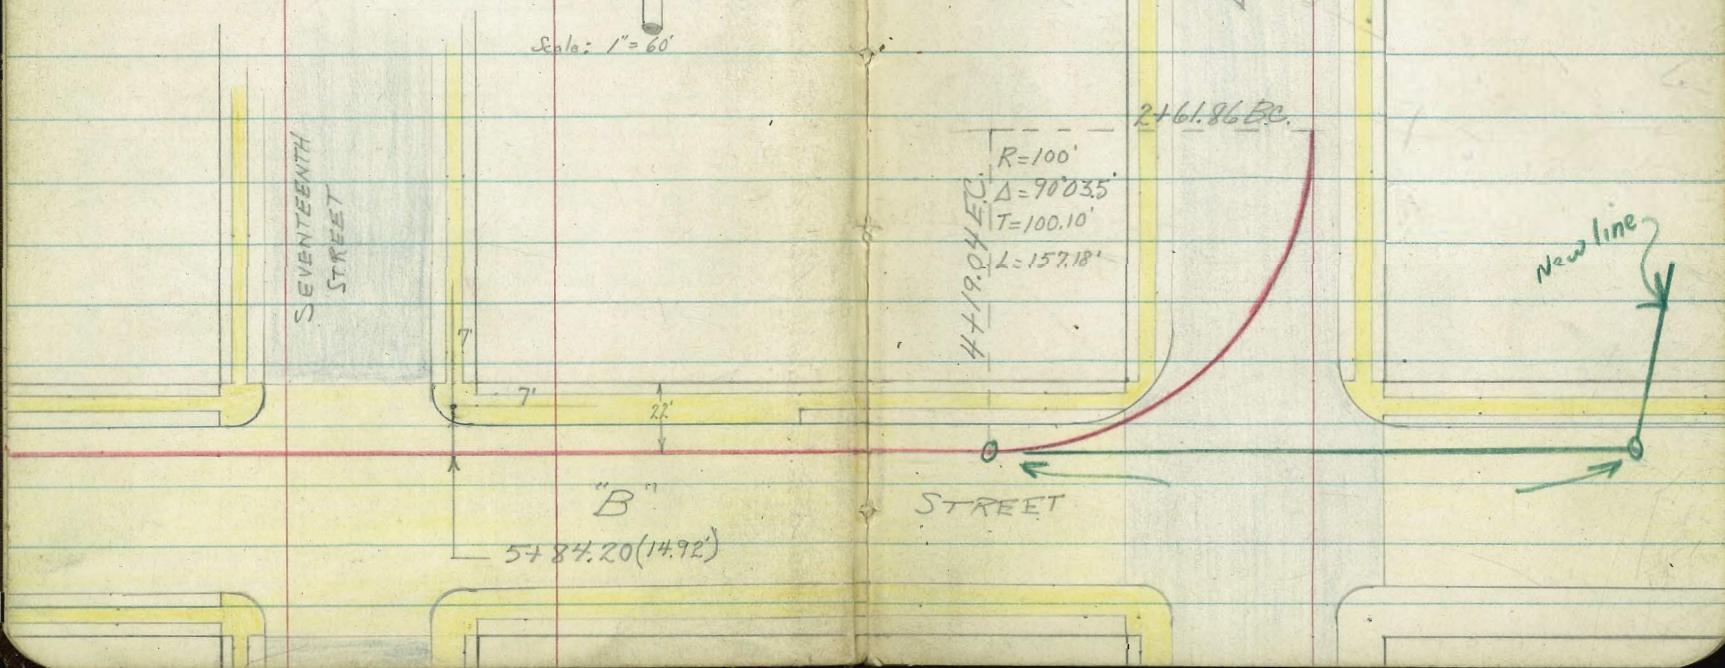 Scale: 1"=60'
SEVENTEENTH
STREET
7'
7'
22'
"B" STREET
5+84.20(14.92')
2+61.86 B.C.
4+19.04 E.C.
R=100'
Δ=90°03.5'
T=100.10'
L=157.18'
New line